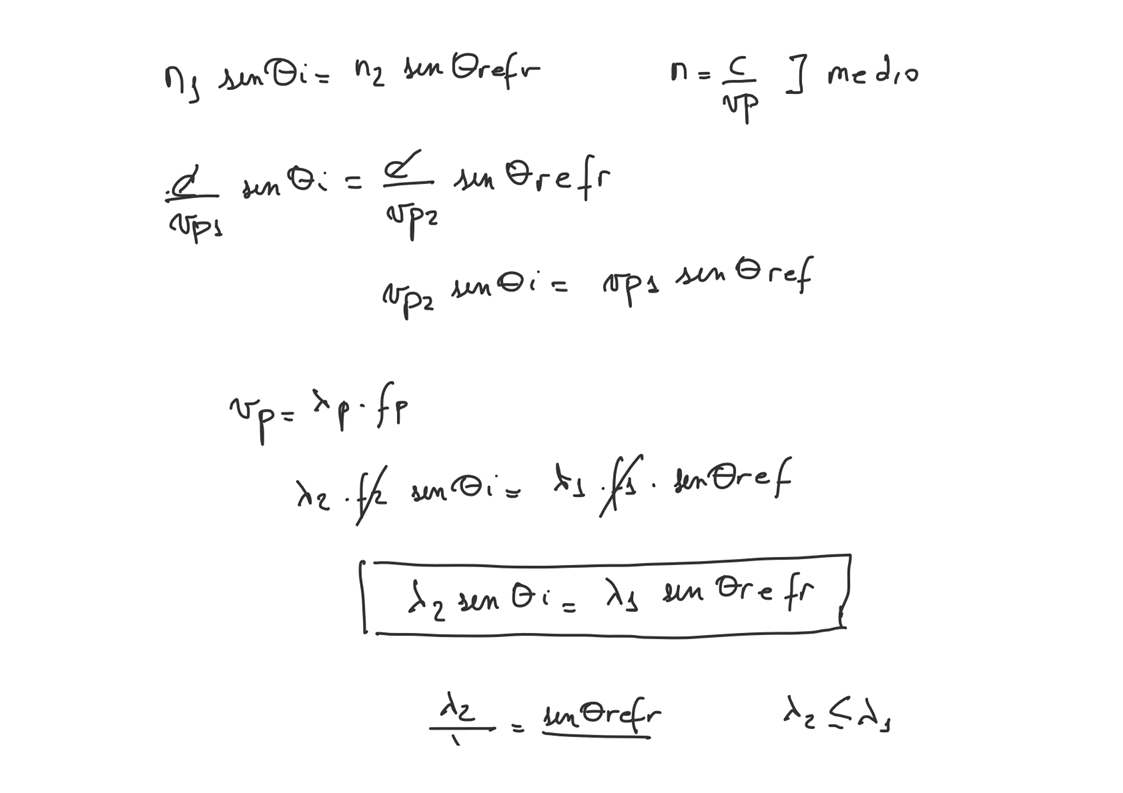 n1 sen θi = n2 sen θrefr n = c/vp ] medio
c/vp1 sen θi = c/vp2 sen θrefr
vp2 sen θi = vp1 sen θref
vp = λp · fp
λ2 · f2 sen θi = λ1 · f1 · sen θref
λ2 sen θi = λ1 sen θrefr
λ2/ = sen θrefr λ2 ≤ λ1